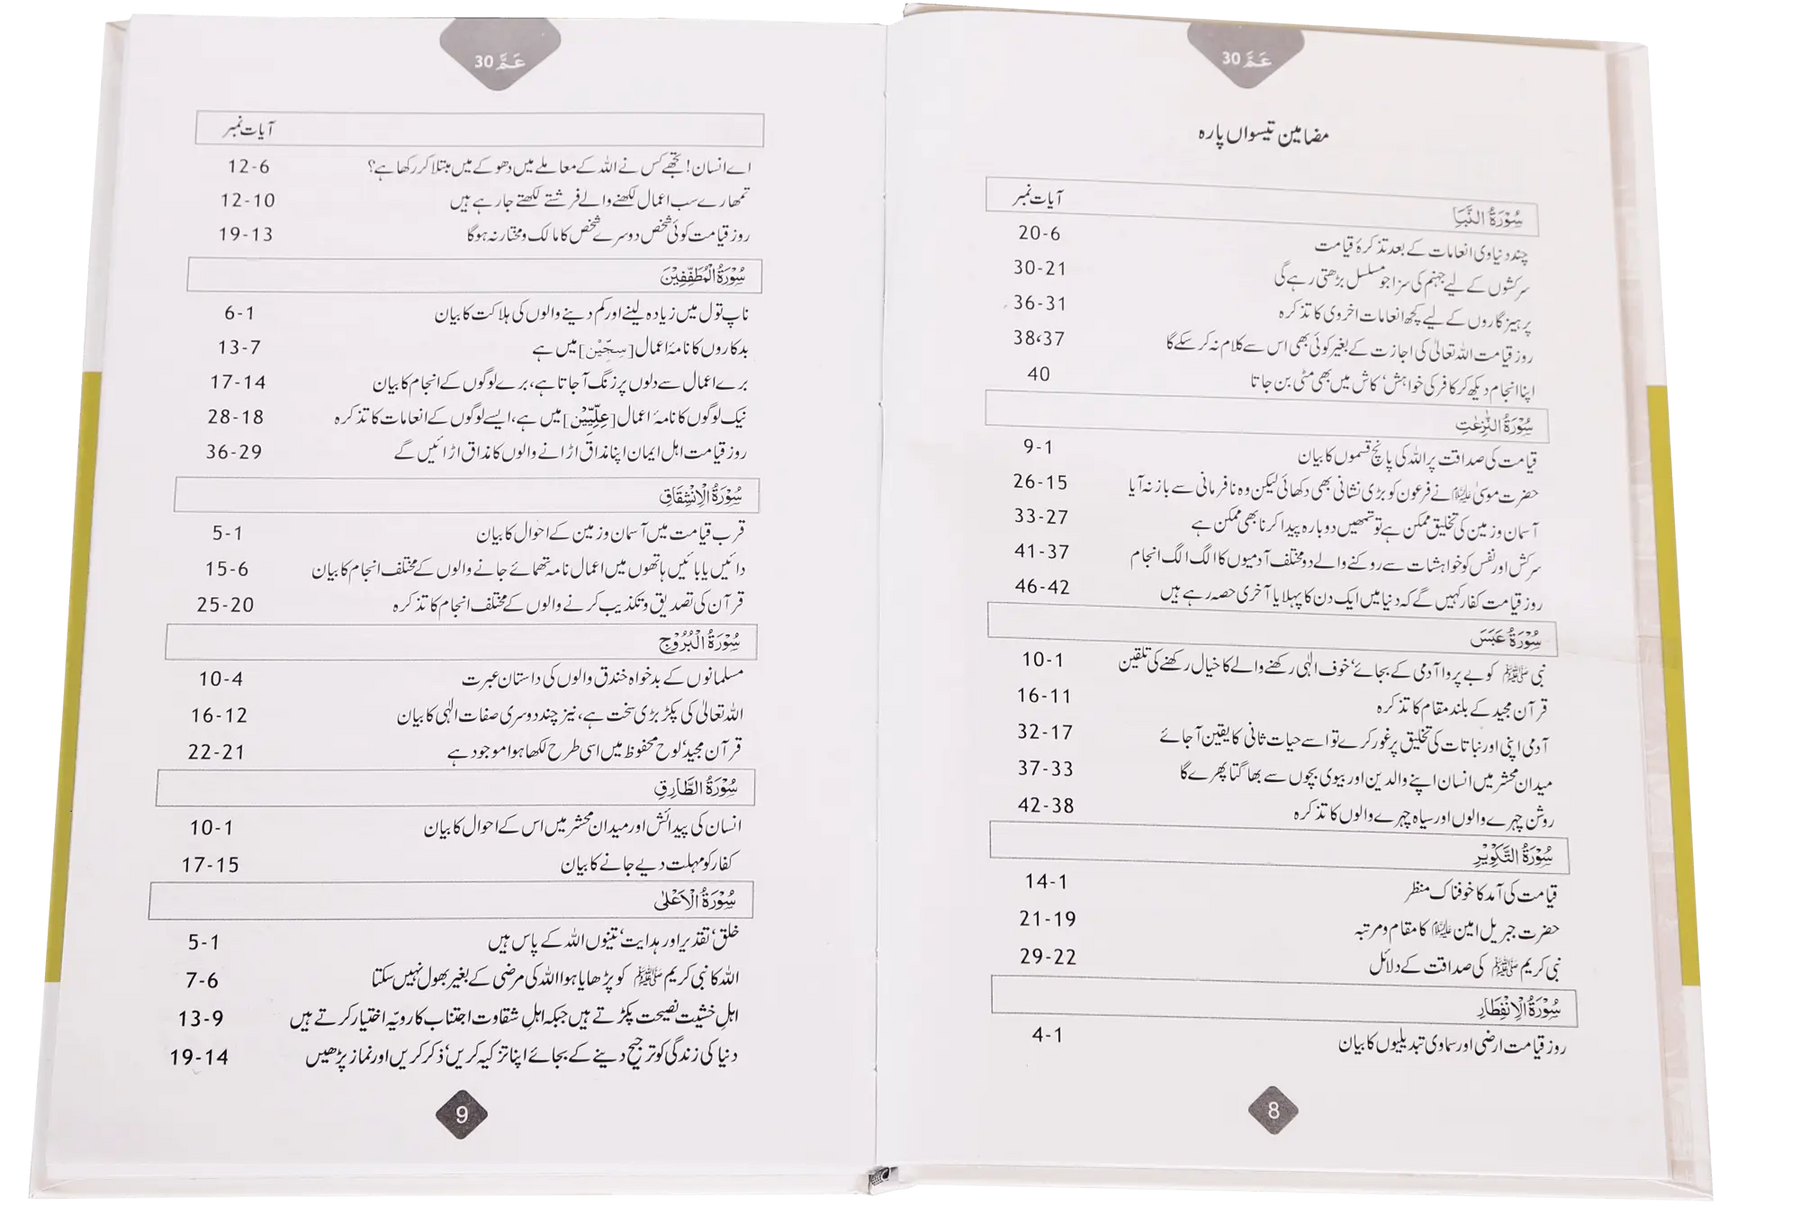 عَمَّ 30
مضامین تیسواں پارہ
آیات نمبر
سُوْرَةُ النَّبَاِ
چند دنیاوی انعامات کے بعد تذکرۂ قیامت 20-6
سرکشوں کے لیے جہنم کی سزا جو مسلسل بڑھتی رہے گی 30-21
پرہیز گاروں کے لیے کچھ انعامات اخروی کا تذکرہ 36-31
روز قیامت اللہ تعالیٰ کی اجازت کے بغیر کوئی بھی اس سے کلام نہ کر سکے گا 38،37
اپنا انجام دیکھ کر کافر کی خواہش’ کاش میں بھی مٹی بن جاتا 40
سُوْرَةُ النّٰزِعٰتِ
قیامت کی صداقت پر اللہ کی پانچ قسموں کا بیان 9-1
حضرت موسیٰ علیہ السلام نے فرعون کو بڑی نشانی بھی دکھائی لیکن وہ نافرمانی سے باز نہ آیا 26-15
آسمان و زمین کی تخلیق ممکن ہے تو تمھیں دوبارہ پیدا کرنا بھی ممکن ہے 33-27
سرکش اور نفس کو خواہشات سے روکنے والے دو مختلف آدمیوں کا الگ الگ انجام 41-37
روز قیامت کفار کہیں گے کہ دنیا میں ایک دن کا پہلا یا آخری حصہ رہے ہیں 46-42
سُوْرَةُ عَبَسَ
نبی ﷺ کو بے پروا آدمی کے بجائے’ خوف الٰہی رکھنے والے کا خیال رکھنے کی تلقین 10-1
قرآن مجید کے بلند مقام کا تذکرہ 16-11
آدمی اپنی اور نباتات کی تخلیق پر غور کرے تو اسے حیات ثانی کا یقین آ جائے 32-17
میدان محشر میں انسان اپنے والدین اور بیوی بچوں سے بھاگتا پھرے گا 37-33
روشن چہرے والوں اور سیاہ چہرے والوں کا تذکرہ 42-38
سُوْرَةُ التَّكْوِيْرِ
قیامت کی آمد کا خوفناک منظر 14-1
حضرت جبریل امین علیہ السلام کا مقام و مرتبہ 21-19
نبی کریم ﷺ کی صداقت کے دلائل 29-22
سُوْرَةُ الْاِنْفِطَارِ
روز قیامت ارضی اور سماوی تبدیلیوں کا بیان 4-1
8
عَمَّ 30
آیات نمبر
اے انسان! تجھے کس نے اللہ کے معاملے میں دھوکے میں مبتلا کر رکھا ہے؟ 12-6
تمھارے سب اعمال لکھنے والے فرشتے لکھتے جا رہے ہیں 12-10
روز قیامت کوئی شخص دوسرے شخص کا مالک و مختار نہ ہوگا 19-13
سُوْرَةُ الْمُطَفِّفِيْنَ
ناپ تول میں زیادہ لینے اور کم دینے والوں کی ہلاکت کا بیان 6-1
بدکاروں کا نامۂ اعمال [سِجِّيْن] میں ہے 13-7
برے اعمال سے دلوں پر زنگ آ جاتا ہے، برے لوگوں کے انجام کا بیان 17-14
نیک لوگوں کا نامۂ اعمال [عِلِّيِّيْن] میں ہے، ایسے لوگوں کے انعامات کا تذکرہ 28-18
روز قیامت اہل ایمان اپنا مذاق اڑانے والوں کا مذاق اڑائیں گے 36-29
سُوْرَةُ الْاِنْشِقَاقِ
قرب قیامت میں آسمان و زمین کے احوال کا بیان 5-1
دائیں یا بائیں ہاتھوں میں اعمال نامہ تھمائے جانے والوں کے مختلف انجام کا بیان 15-6
قرآن کی تصدیق و تکذیب کرنے والوں کے مختلف انجام کا تذکرہ 25-20
سُوْرَةُ الْبُرُوْجِ
مسلمانوں کے بدخواہ خندق والوں کی داستان عبرت 10-4
اللہ تعالیٰ کی پکڑ بڑی سخت ہے، نیز چند دوسری صفات الٰہی کا بیان 16-12
قرآن مجید’ لوح محفوظ میں اسی طرح لکھا ہوا موجود ہے 22-21
سُوْرَةُ الطَّارِقِ
انسان کی پیدائش اور میدان محشر میں اس کے احوال کا بیان 10-1
کفار کو مہلت دیے جانے کا بیان 17-15
سُوْرَةُ الْاَعْلٰى
خلق’ تقدیر اور ہدایت’ تینوں اللہ کے پاس ہیں 5-1
اللہ کا نبی کریم ﷺ کو پڑھایا ہوا اللہ کی مرضی کے بغیر بھول نہیں سکتا 7-6
اہلِ خشیت نصیحت پکڑتے ہیں جبکہ اہلِ شقاوت اجتناب کا رویّہ اختیار کرتے ہیں 13-9
دنیا کی زندگی کو ترجیح دینے کے بجائے اپنا تزکیہ کریں’ ذکر کریں اور نماز پڑھیں 19-14
9